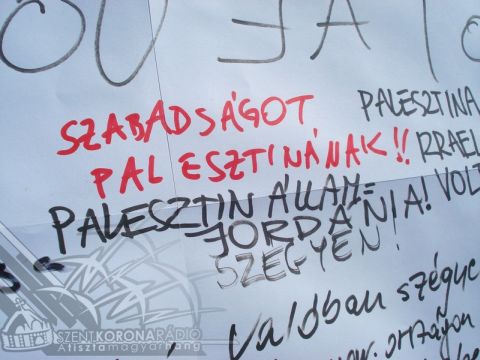 SZABADSÁGOT
PALESZTINÁNAK!!
PALESZTINA
IZRAEL
VOLT
PALESZTIN ÁLLAM=
JORDÁNIA!
SZÉGYEN!
Valóban szégye
országon
SZENT KORONA RÁDIÓ
A tiszta magyar hang